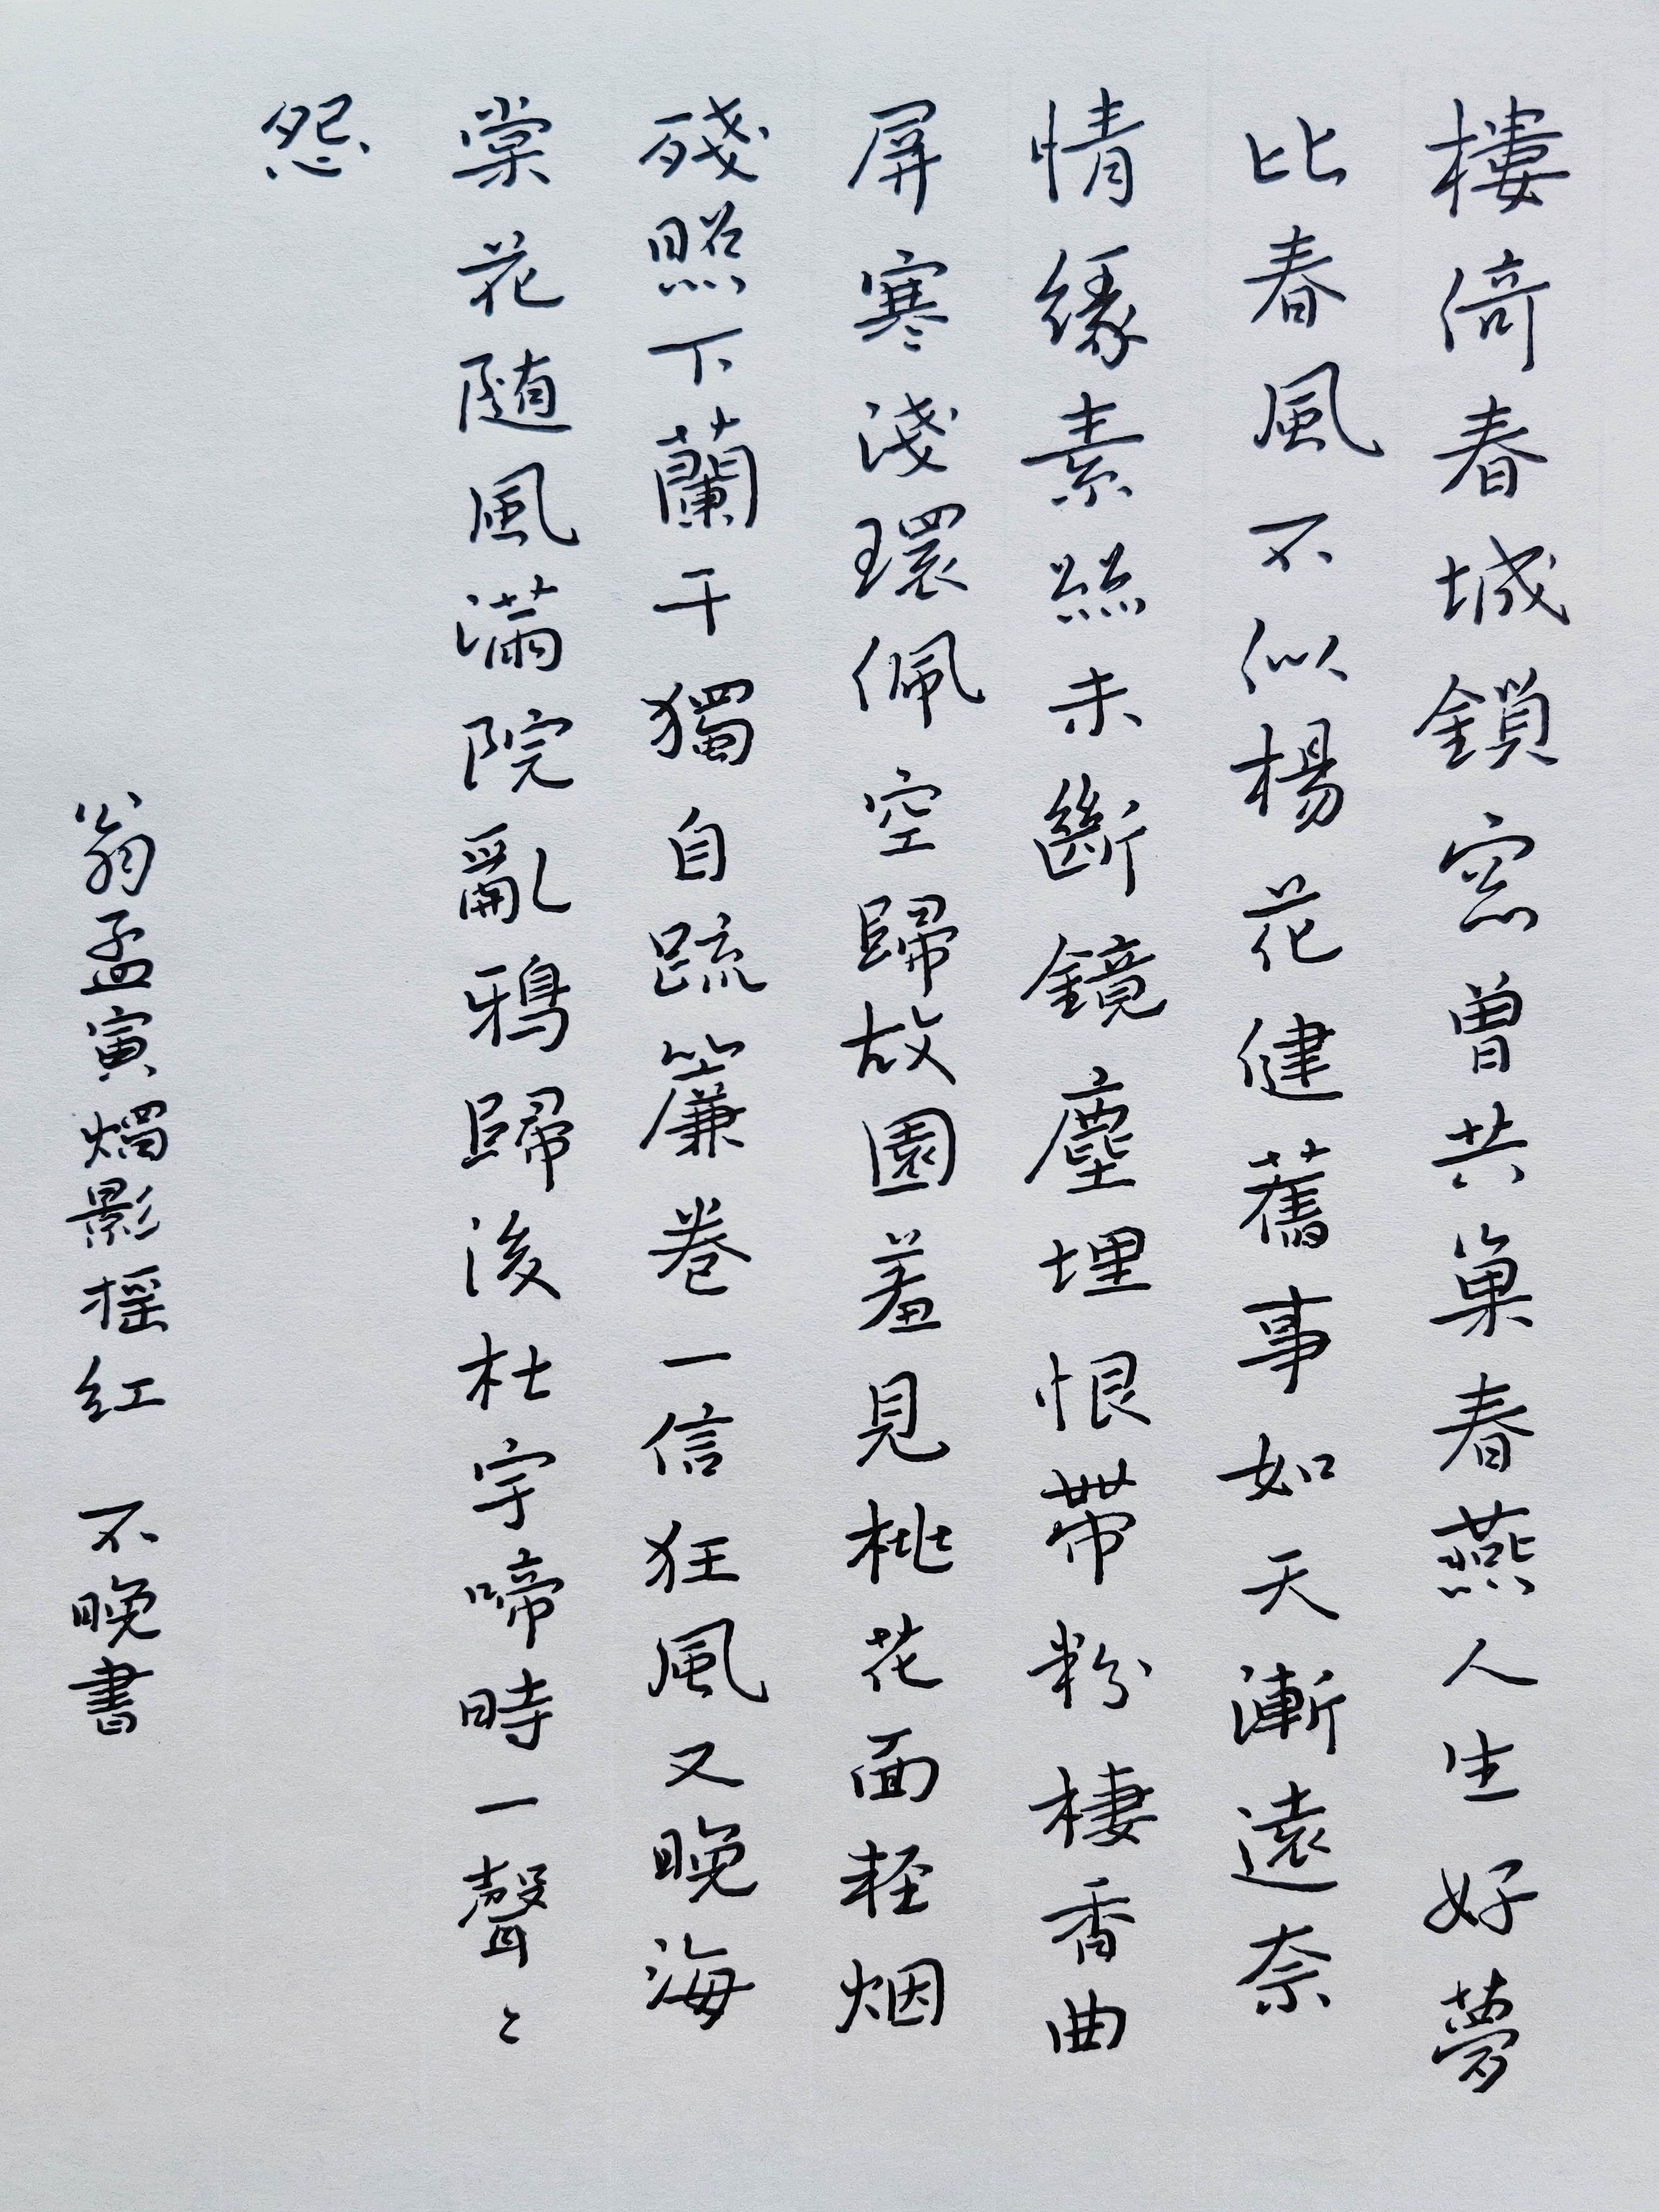 樓倚春城鎖窓曾共巢春燕人生好夢
比春風不似楊花健舊事如天漸遠奈
情緣素絲未斷鏡塵埋恨帶粉棲香曲
屏寒淺環佩空歸故園羞見桃花面軽烟
殘照下蘭干獨自疏簾卷一信狂風又晚海
棠花随風滿院亂鴉歸後杜宇啼時一聲〻
怨
翁孟寅燭影摇紅 不晚書